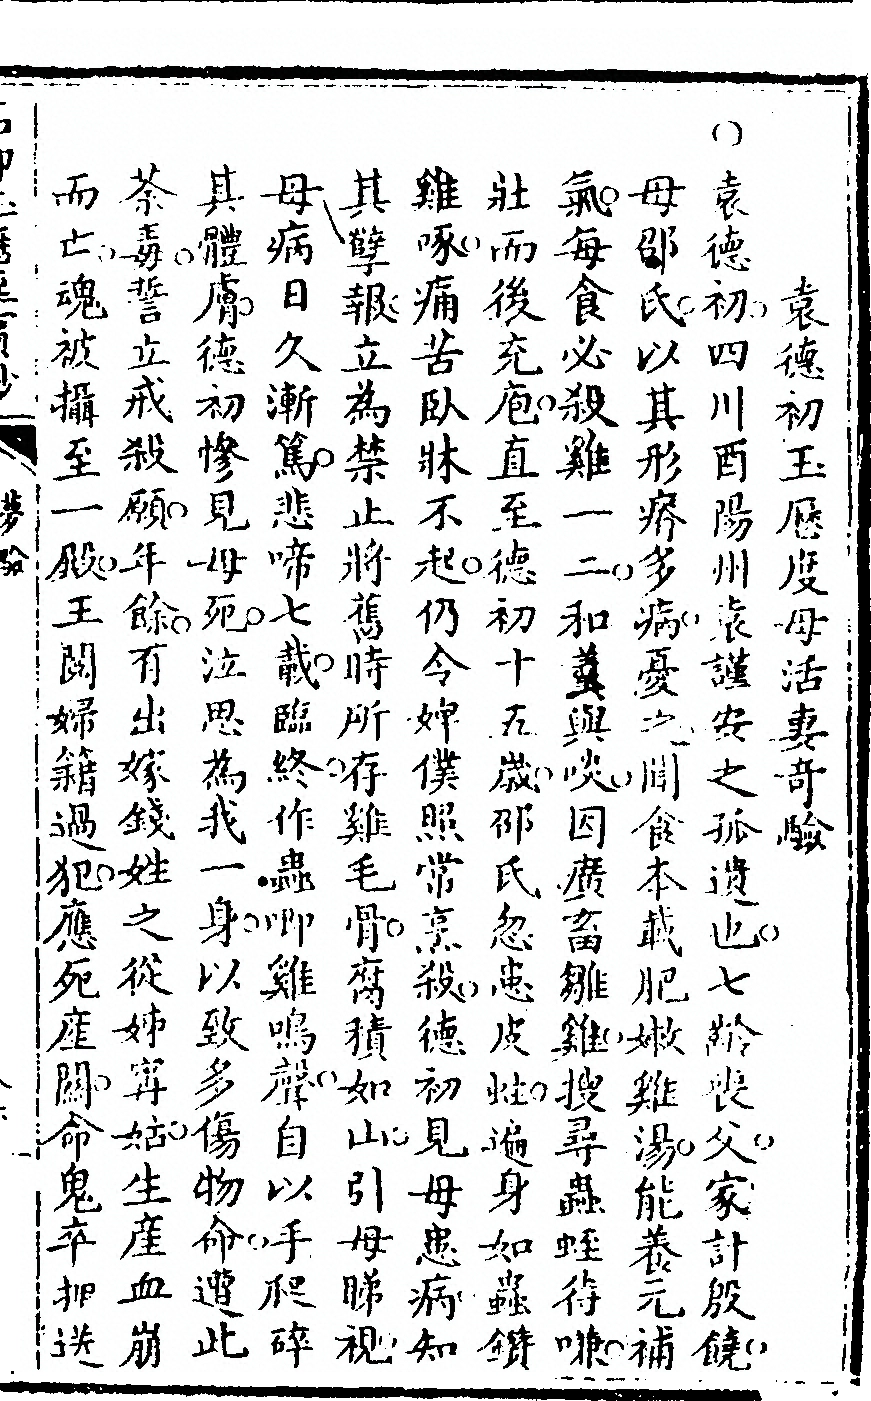 袁德初玉歷度母活妻奇驗
○袁德初。四川酉陽州袁謹安之孤遺也。七齡丧父。家計殷饒。
母邵氏。以其形瘠多病。憂之。聞食本載肥嫩雞湯。能養元補
氣。每食必殺雞一二。和羹與啖。因廣畜雛雞。搜尋蟲蛭待嗛。
壯而後充庖。直至德初十五歲。邵氏忽患皮蛀。遍身如蟲鑽
雞啄。痛苦臥牀不起。仍令婢僕照常烹殺。德初見母患病。知
其孽報。立為禁止。將舊時所存雞毛骨。腐積如山。引母睇視。
母病日久漸篤。悲啼七載。臨終。作蟲唧雞鳴聲。自以手爬碎
其體膚。德初慘見母死。泣思為我一身。以致多傷物命。遭此
荼毒。誓立戒殺願。年餘。有出嫁錢姓之從姊寗姑。生產血崩
而亡。魂被攝至一殿。王閱婦籍過犯。應死產關。命鬼卒押送
夢驗